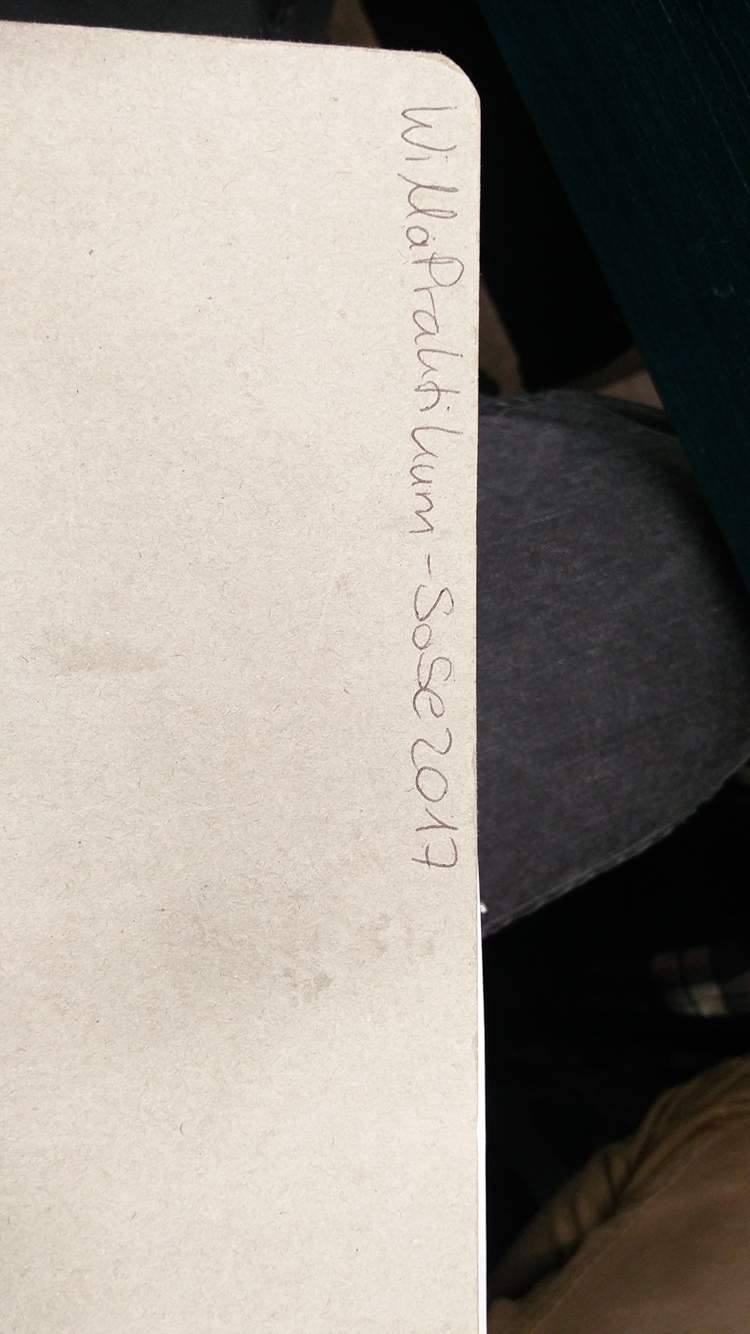 WillaPraktikum - SoSe 2017